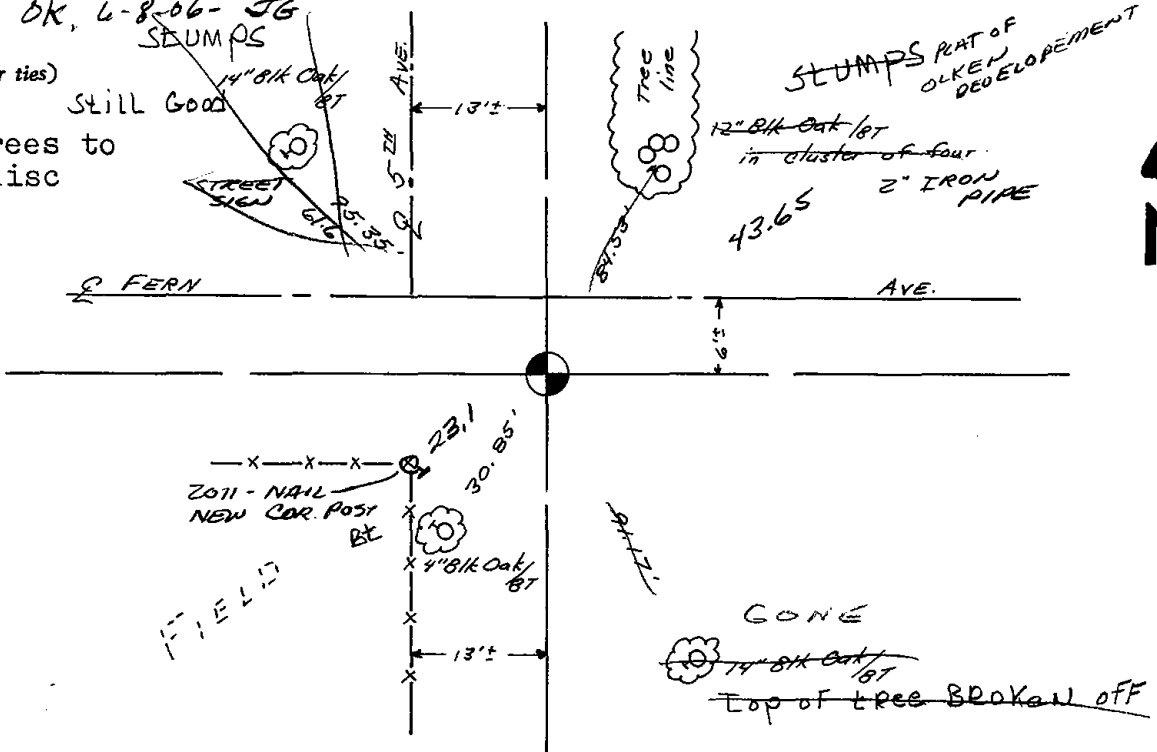 OK, 6-8-06- JG
STUMPS
r ties)
14" Blk Oak/
BT
Still Good
rees to
isc
STREET
SIGN
61.6
95.35'
℄ 5TH AVE.
13'±
Tree
line
84.53'
STUMPS PLAT OF
OLKEN
DEVELOPEMENT
12" Blk Oak/BT
in cluster of four.
2" IRON
PIPE
43.65
N
℄ FERN AVE.
6'±
23.1
30.85'
x x x
2011 - NAIL
NEW COR. POST
Bt
x
x 4" Blk Oak/
BT
x
x
FIELD
91.17'
13'±
GONE
14" Blk Oak/
BT
Top of tree BROKEN off